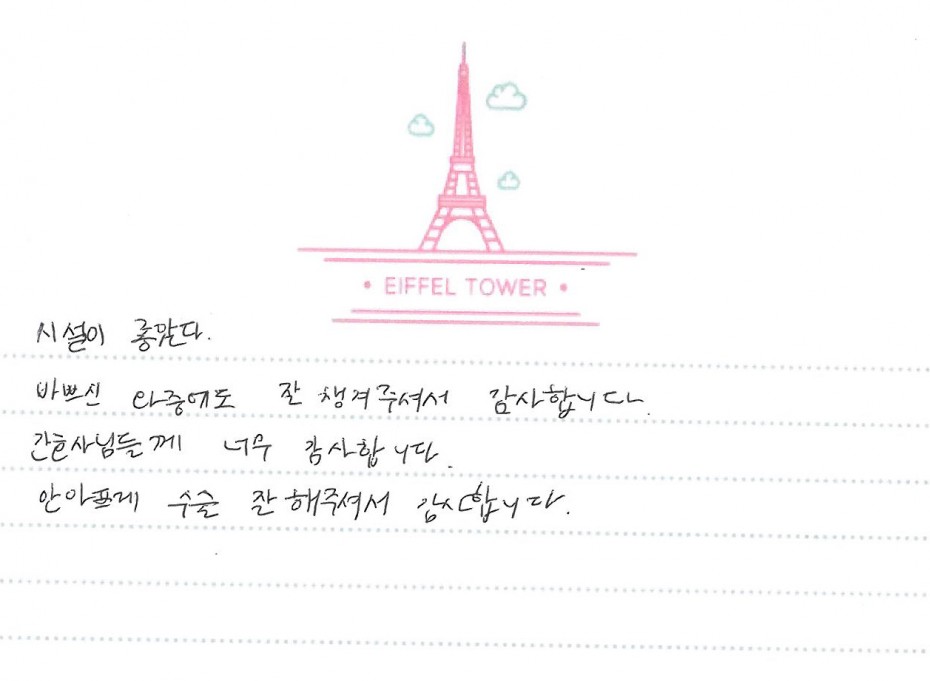 EIFFEL TOWER
시설이 좋았다.
바쁘신 와중에도 잘 챙겨주셔서 감사합니다.
간호사님들께 너무 감사합니다.
안아프게 수술 잘 해주셔서 감사합니다.